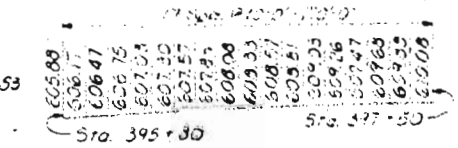 17 Spa. @ 10'-0"=170'-0"
605.88
606.17
606.47
606.75
607.03
607.30
607.57
607.83
608.08
608.33
608.57
608.81
609.03
609.26
609.47
609.68
609.88
610.08
53
Sta. 395+80
Sta. 397+50